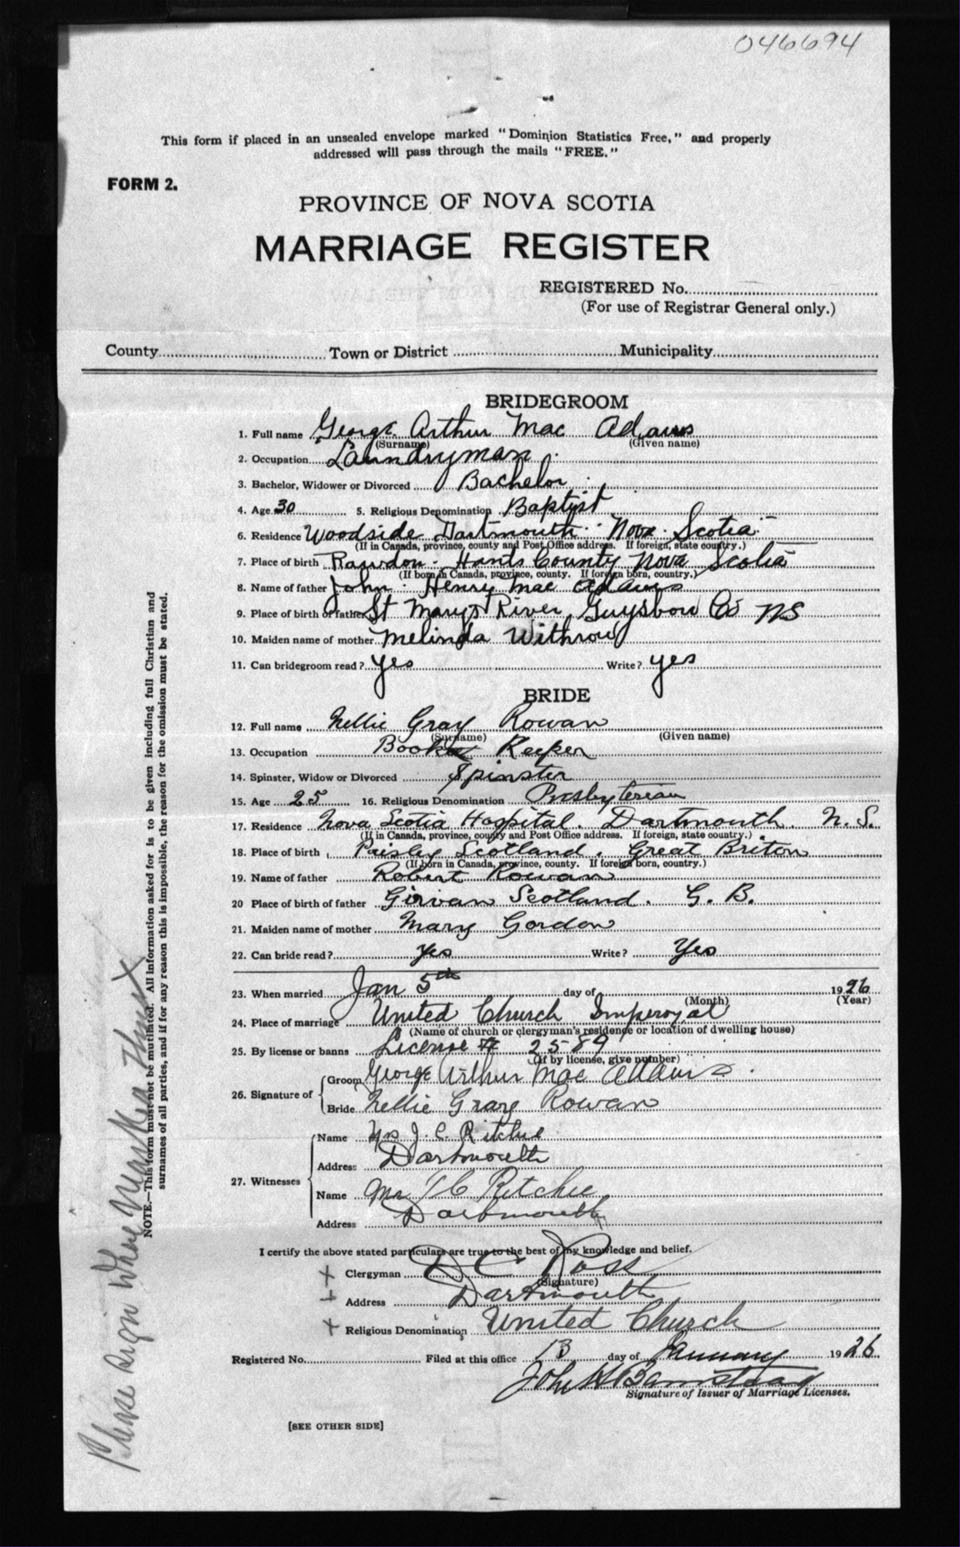 046694
This form if placed in an unsealed envelope marked "Dominion Statistics Free," and properly
addressed will pass through the mails "FREE."
FORM 2.
PROVINCE OF NOVA SCOTIA
MARRIAGE REGISTER
REGISTERED No.
(For use of Registrar General only.)
County Town or District Municipality
BRIDEGROOM
1. Full name George Arthur Mac Adams
(Surname) (Given name)
2. Occupation Laundryman
3. Bachelor, Widower or Divorced Bachelor
4. Age 30 5. Religious Denomination Baptist
6. Residence Woodside Dartmouth Nova Scotia
(If in Canada, province, county and Post Office address. If foreign, state country.)
7. Place of birth Rawdon Hants County Nova Scotia
(If born in Canada, province, county. If foreign born, country.)
8. Name of father John Henry Mac Adams
9. Place of birth of father St Marys River Guysboro Co NS
10. Maiden name of mother Melinda Withrow
11. Can bridegroom read? yes Write? yes
BRIDE
12. Full name Nellie Gray Rowan
(Surname) (Given name)
13. Occupation Book Keeper
14. Spinster, Widow or Divorced Spinster
15. Age 25 16. Religious Denomination Presbyterean
17. Residence Nova Scotia Hospital. Dartmouth. N.S.
(If in Canada, province, county and Post Office address. If foreign, state country.)
18. Place of birth Paisley Scotland. Great Briton
(If born in Canada, province, county. If foreign born, country.)
19. Name of father Robert Rowan
20 Place of birth of father Girvan Scotland. G. B.
21. Maiden name of mother Mary Gordon
22. Can bride read? Yes Write? Yes
23. When married Jan 5th day of 1926
(Month) (Year)
24. Place of marriage United Church Imperoyal
(Name of church or clergyman's residence or location of dwelling house)
25. By license or banns License # 2589
(If by license, give number)
26. Signature of Groom George Arthur Mac Adams.
Bride Nellie Gray Rowan
27. Witnesses
Name Mrs J. C. Ritchie
Address Dartmouth
Name Mr J C Ritchie
Address Dartmouth
I certify the above stated particulars are true to the best of my knowledge and belief.
+ Clergyman D C Ross
(Signature)
+ Address Dartmouth
+ Religious Denomination United Church
Registered No. Filed at this office 13 day of January 1926
John H Barnstead
Signature of Issuer of Marriage Licenses.
[SEE OTHER SIDE]
NOTE.—This form must not be mutilated. All information asked for is to be given including full Christian and
surnames of all parties, and if for any reason this is impossible, the reason for the omission must be stated.
Please sign where marked thus X